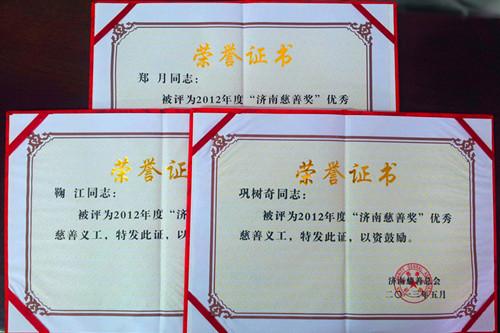 荣誉证书
郑 月同志：
被评为2012年度“济南慈善奖”优秀
荣誉证
鞠 江同志：
被评为2012年度“济
慈善义工，特发此证，以
荣誉证书
巩树奇同志：
被评为2012年度“济南慈善奖”优秀
慈善义工，特发此证，以资鼓励。
济南慈善总会
二〇一三年五月